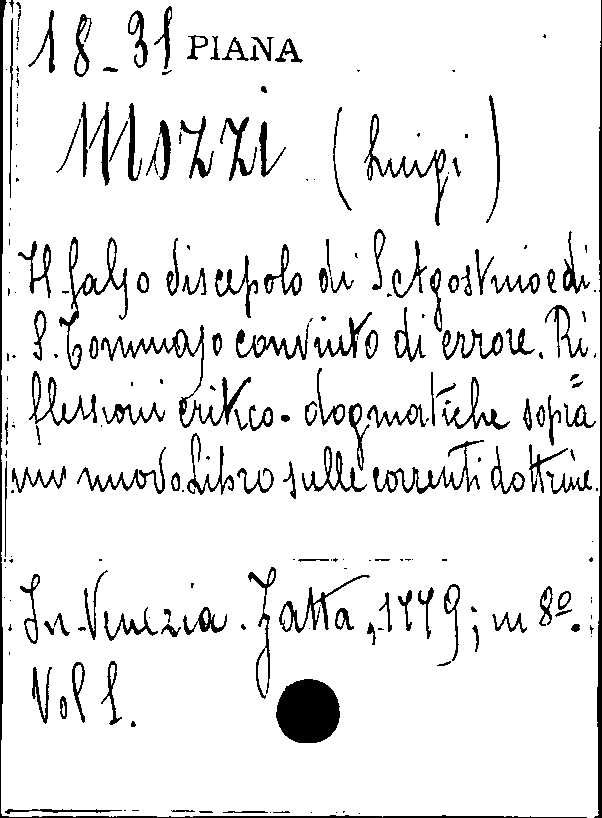 18-31 PIANA
Mozzi (Luigi)
Il falso discepolo di S. Agostino e di
S. Tommaso convinto di errore. Ri=
flessioni critico-dogmatiche sopra
un nuovo Libro sulle correnti dottrine.
In Venezia. Zatta, 1779; in 8º.
Vol 1.